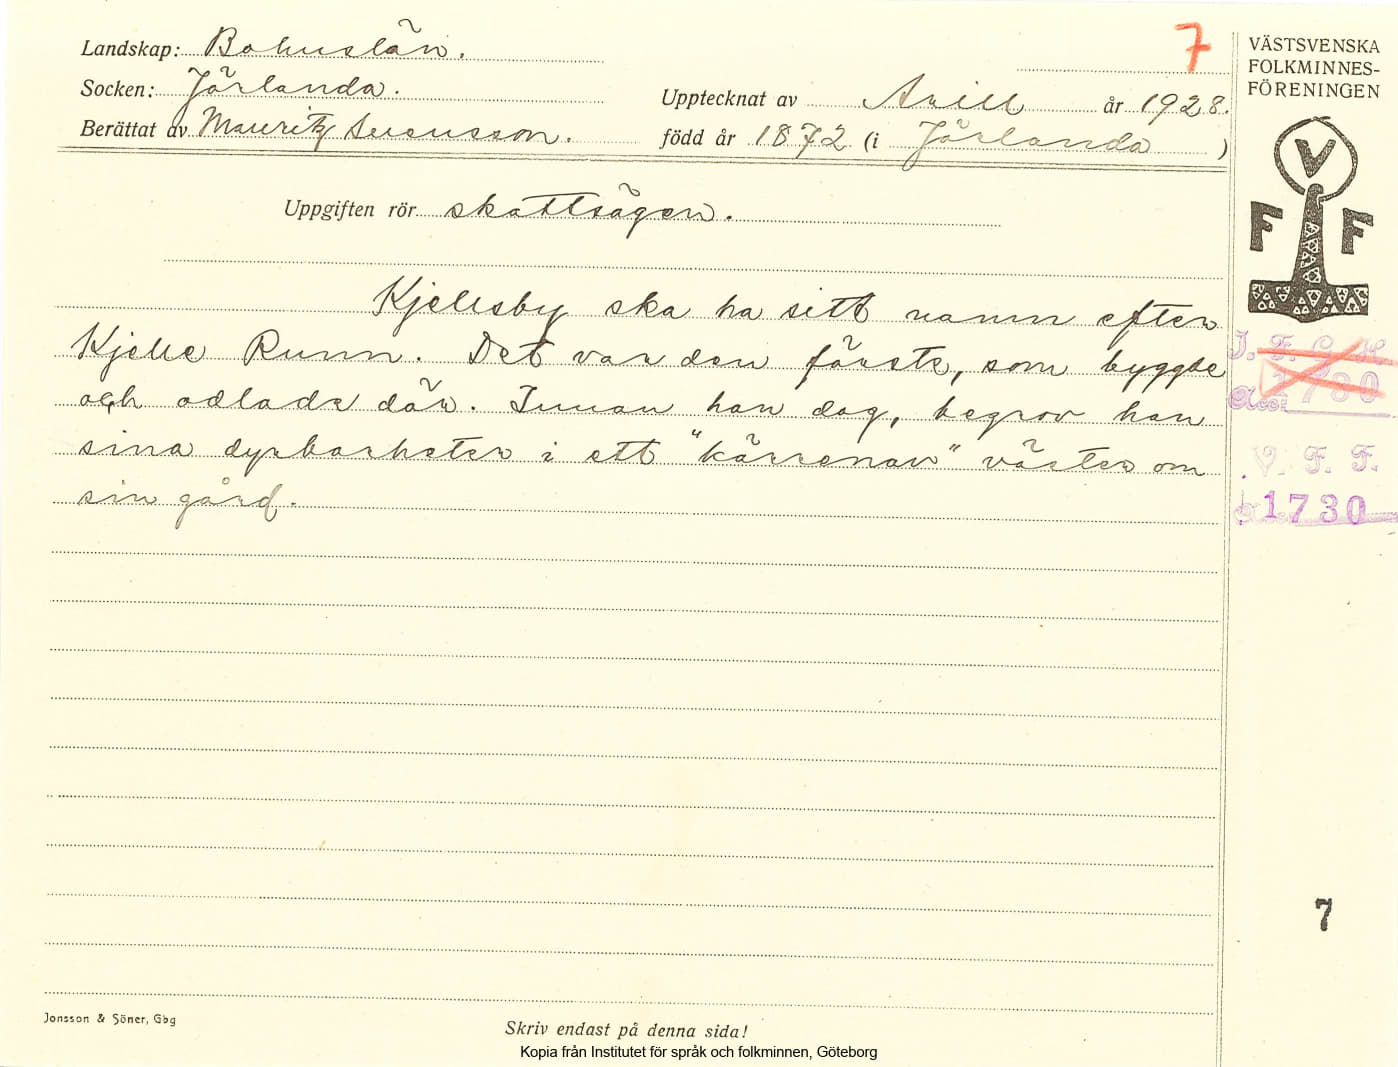 Landskap: Bohuslän.
7
Socken: Jörlanda.
Upptecknat av Arill år 1928.
Berättat av Mauritz
född år 1872 (i Jörlanda )
Uppgiften rör skattsägen.
Kjellsby ska ha sitt namn efter
Kjelle Runn. Det var den förste, som byggde
och odlade där. Innan han dog, begrov han
sina dyrbarheter i ett "kärrenav" väster om
sin gård.
VÄSTSVENSKA
FOLKMINNES-
FÖRENINGEN
V
F F
I. F. G. H.
Acc: 1730
V. F. F.
1730
7
Jonsson & Söner, Gbg
Skriv endast på denna sida!
Kopia från Institutet för språk och folkminnen, Göteborg